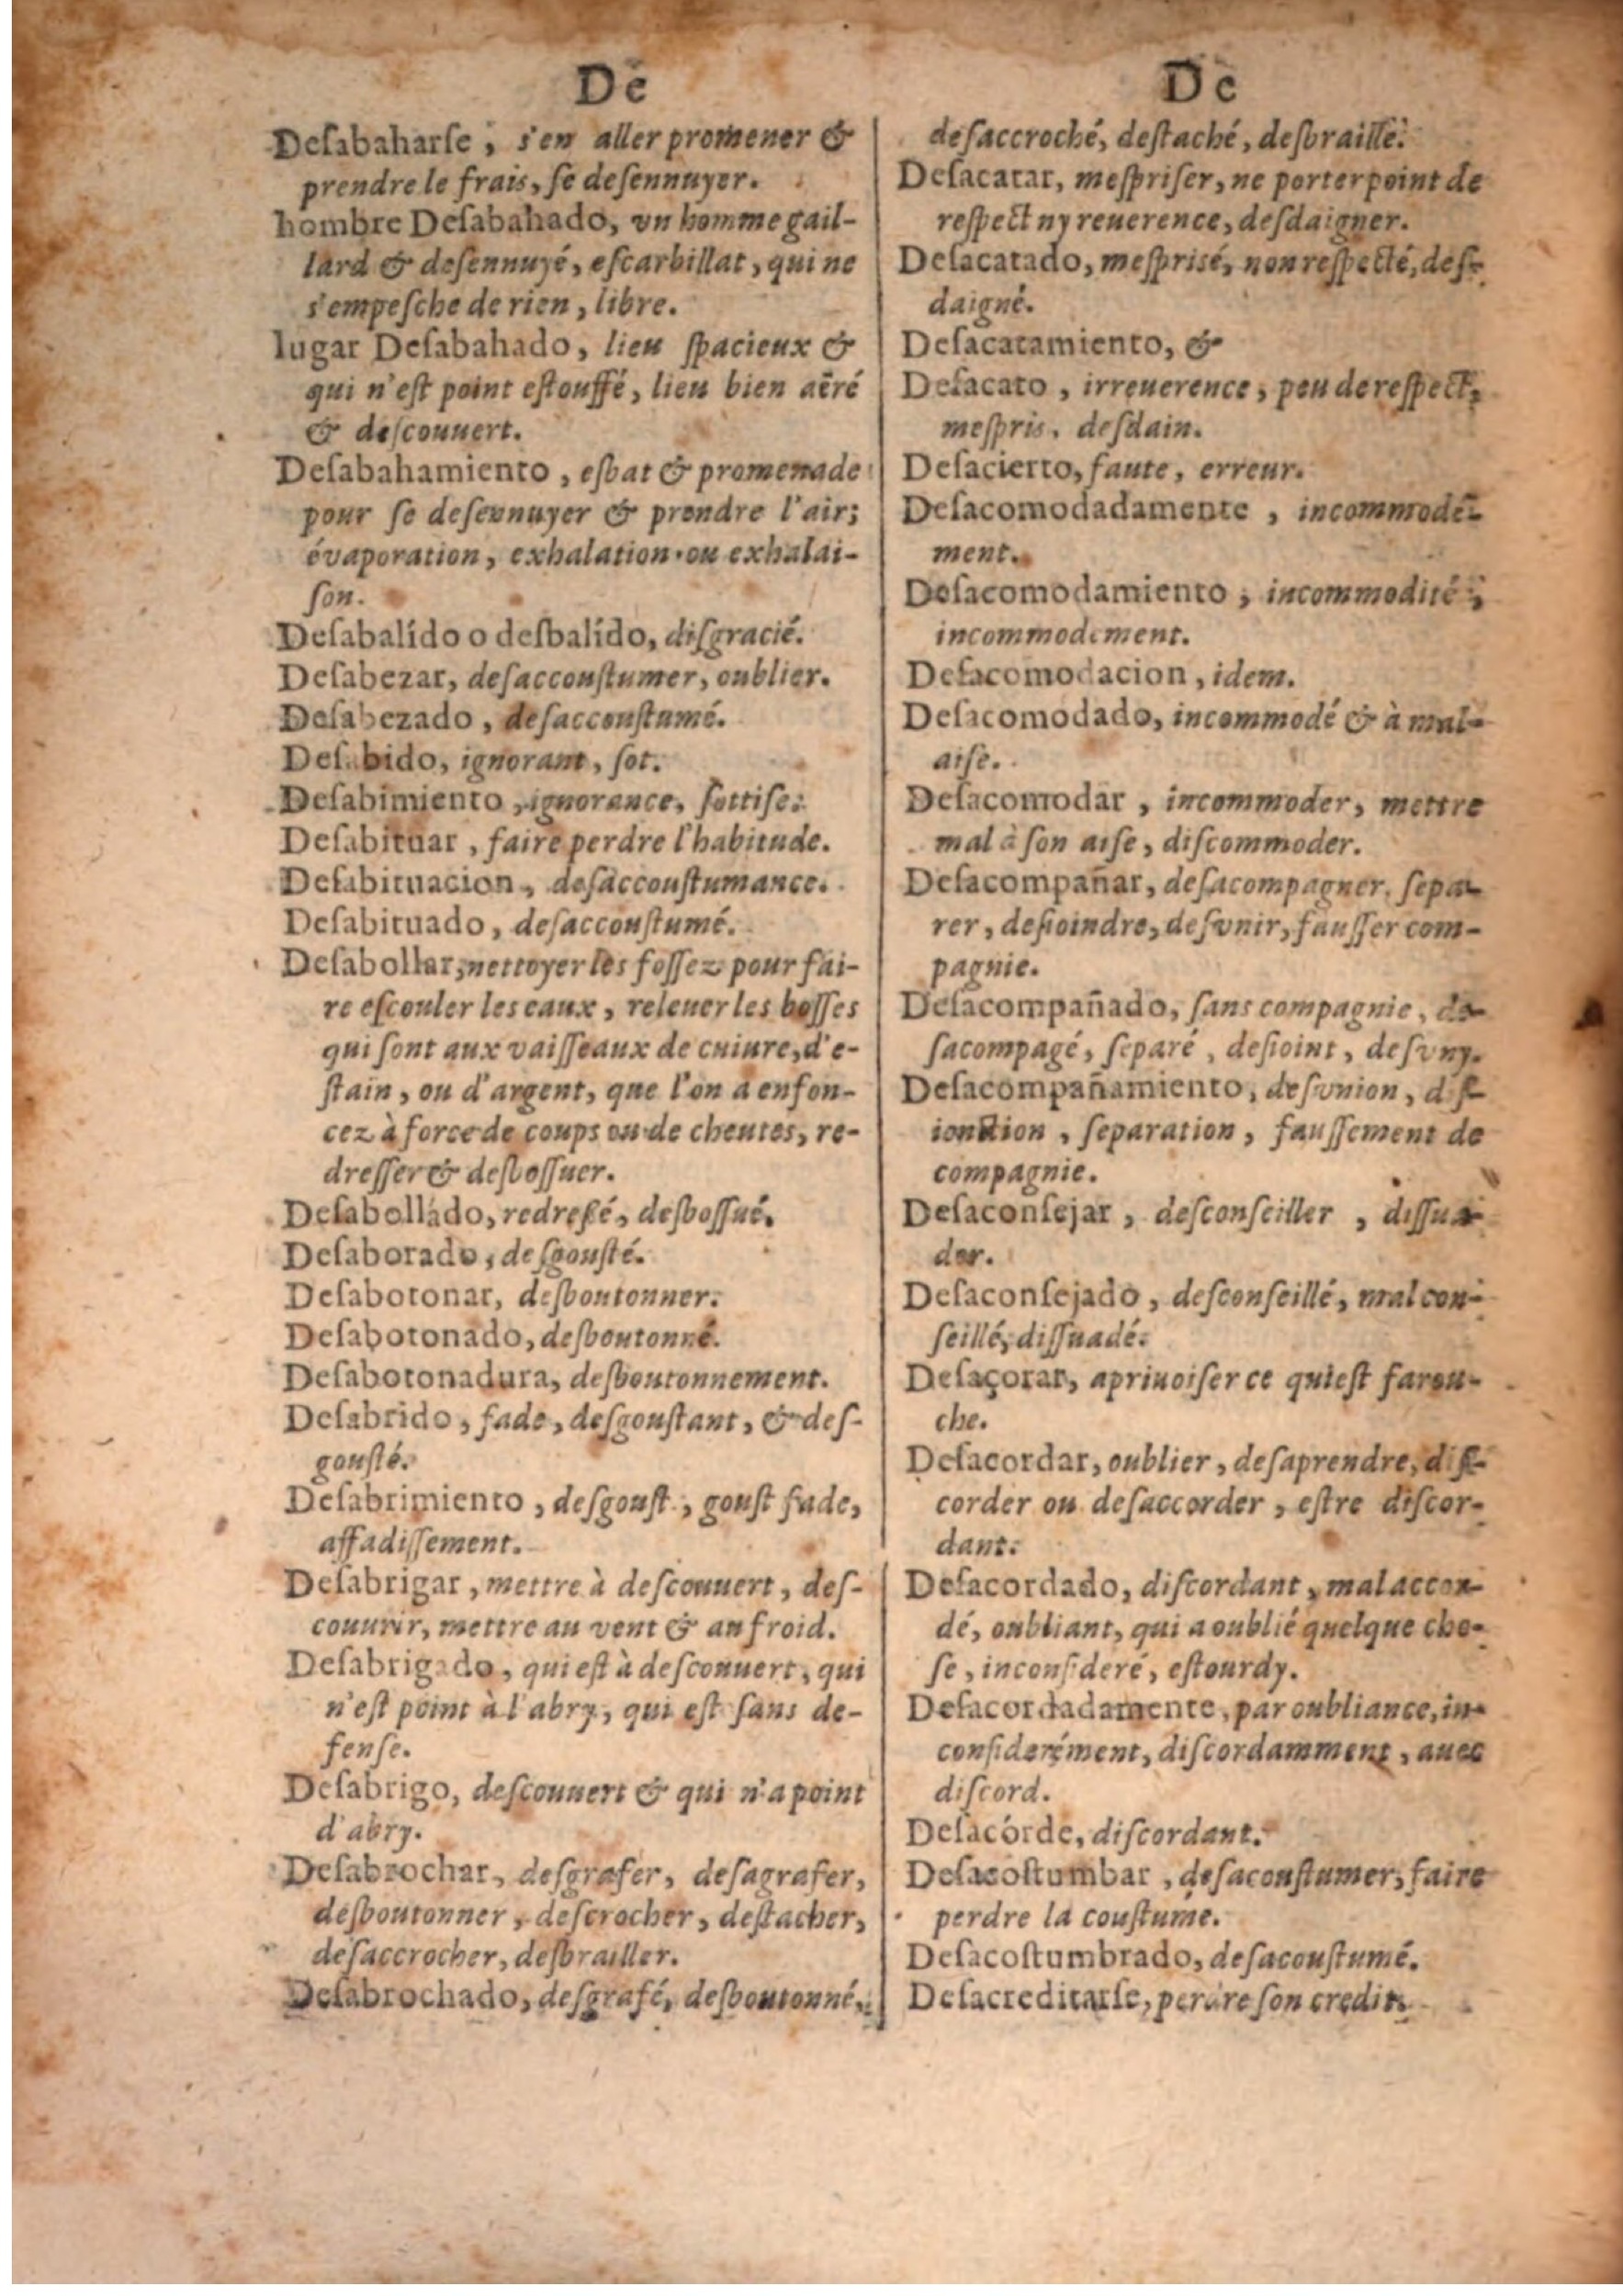 De
Deſabaharſe, s'en aller promener &
prendre le frais, ſe deſennuyer.
hombre Deſabahado, vn homme gail-
lard & deſennuyé, eſcarbillat, qui ne
s'empeſche de rien, libre.
lugar Deſabahado, lieu ſpacieux &
qui n'eſt point eſtouffé, lieu bien aëré
& deſcouuert.
Deſabahamiento, eſbat & promenade
pour ſe deſennuyer & prendre l'air;
évaporation, exhalation ou exhalai-
ſon.
Deſabalído o deſbalído, diſgracié.
Deſabezar, deſaccouſtumer, oublier.
Deſabezado, deſaccouſtumé.
Deſabido, ignorant, ſot.
Deſabimiento, ignorance, ſottiſe.
Deſabituar, faire perdre l'habitude.
Deſabituacion, deſaccouſtumance.
Deſabituado, deſaccouſtumé.
Deſabollar, nettoyer les foſſez pour fai-
re eſcouler les eaux, releuer les boſſes
qui ſont aux vaiſſeaux de cuiure, d'e-
ſtain, ou d'argent, que l'on a enfon-
cez à force de coups ou de cheutes, re-
dreſſer & deſboſſuer.
Deſabolládo, redreſſé, deſboſſué.
Deſaborado, deſgouſté.
Deſabotonar, deſboutonner.
Deſabotonado, deſboutonné.
Deſabotonadura, deſboutonnement.
Deſabrido, fade, deſgouſtant, & deſ-
gouſté.
Deſabrimiento, deſgouſt, gouſt fade,
affadiſſement.
Deſabrigar, mettre à deſcouuert, deſ-
couurir, mettre au vent & au froid.
Deſabrigado, qui eſt à deſcouuert, qui
n'eſt point à l'abry, qui eſt ſans de-
fenſe.
Deſabrigo, deſcouuert & qui n'a point
d'abry.
Deſabrochar, deſgrafer, deſagrafer,
deſboutonner, deſcrocher, deſtacher,
deſaccrocher, deſbrailler.
Deſabrochado, deſgrafé, deſboutonné,
De
deſaccroché, deſtaché, deſbraillé.
Deſacatar, meſpriſer, ne porter point de
reſpect ny reuerence, deſdaigner.
Deſacatado, meſpriſé, non reſpecté, deſ-
daigné.
Deſacatamiento, &
Deſacato, irreuerence, peu de reſpect,
meſpris, deſdain.
Deſacierto, faute, erreur.
Deſacomodadamente, incommodé-
ment.
Deſacomodamiento, incommodité,
incommodement.
Deſacomodacion, idem.
Deſacomodado, incommodé & à mal-
aiſe.
Deſacomodar, incommoder, mettre
mal à ſon aiſe, diſcommoder.
Deſacompañar, deſacompagner, ſepa-
rer, deſioindre, deſvnir, fauſſer com-
pagnie.
Deſacompañado, ſans compagnie, de-
ſacompagé, ſeparé, deſioint, deſvny.
Deſacompañamiento, deſvnion, diſ-
ionction, ſeparation, fauſſement de
compagnie.
Deſaconſejar, deſconſeiller, diſſua-
der.
Deſaconſejado, deſconſeillé, mal con-
ſeillé, diſſuadé.
Deſaçorar, apriuoiſer ce qui eſt farou-
che.
Deſacordar, oublier, deſaprendre, diſ-
corder ou deſaccorder, eſtre diſcor-
dant.
Deſacordado, diſcordant, mal accor-
dé, oubliant, qui a oublié quelque cho-
ſe, inconſideré, eſtourdy.
Deſacordadamente, par oubliance, in-
conſiderément, diſcordamment, auec
diſcord.
Deſacórde, diſcordant.
Deſacoſtumbar, deſacouſtumer, faire
perdre la couſtume.
Deſacoſtumbrado, deſacouſtumé.
Deſacreditarſe, perdre ſon credit.